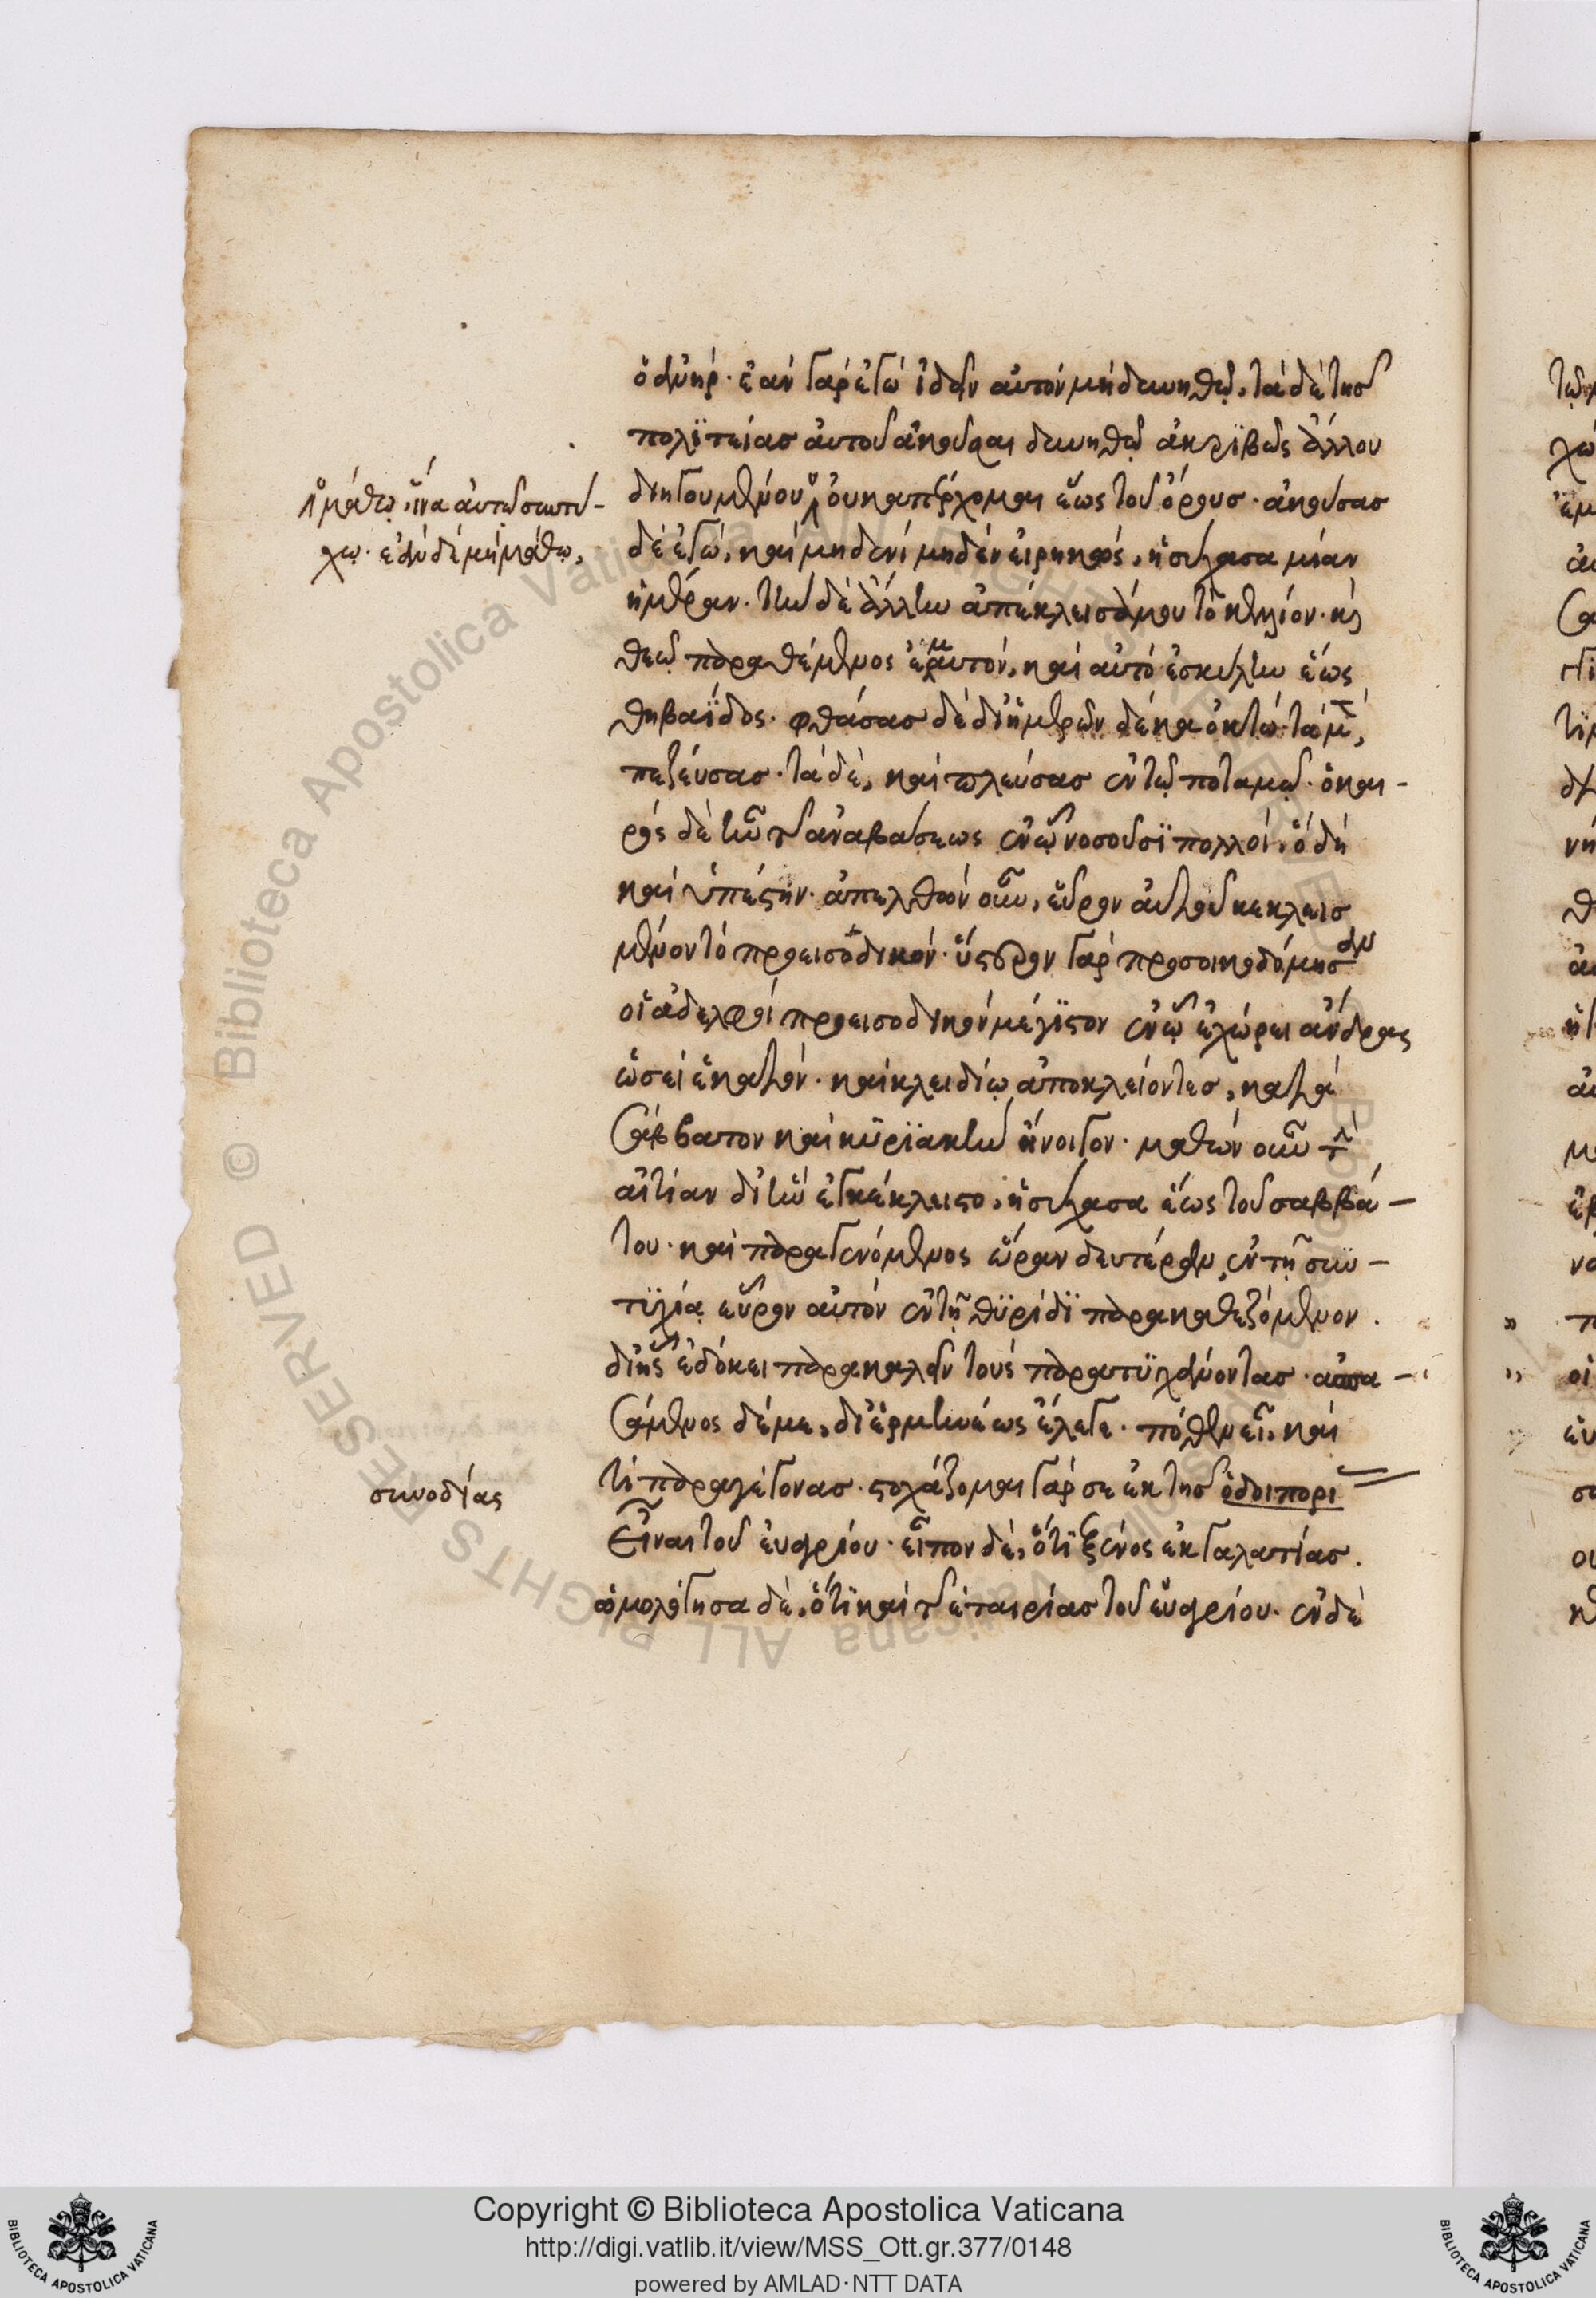 ὁ ἀνήρ· ἐὰν γὰρ ἐγὼ ἰδεῖν αὐτὸν μὴ δυνηθῶ, τὰ δὲ τῆς
πολϊτείας αὐτοῦ ἀκοῦσαι δυνηθῶ ἀκρϊβῶς ἄλλου
διηγουμένου οὐκ ἀπέρχομαι ἕως τοῦ ὄρους· ἀκούσας
δὲ ἐγὼ, καὶ μηδενὶ μηδὲν εἰρηκὼς, ἡσύχασα μίαν
ἡμέραν. τῇ δὲ ἄλλῃ ἀπέκλεισά μου τὸ κελίον· κς
θεῷ παραθέμενος ἐμαυτόν, καὶ αὐτὸ ἐσκύλην ἕως
θηβαΐδος· φθάσας δὲ δι' ἡμερῶν δέκα ὀκτὼ· τὰ μὲν,
πεζεύσας· τὰ δὲ, καὶ πλεύσας ἐν τῷ ποταμῷ· ὁ και-
ρὸς δὲ ἦν τῆς ἀναβάσεως ἐν ᾧ νοσοῦσϊ πολλοί, ὃ δὴ
καὶ ὑπέστην· ἀπελθὼν οὖν, εὗρον αὐτοῦ κεκλεισ
μένον τὸ προεισοδικόν· ὕστερον γὰρ προσοικοδόμησαν
οἱ ἀδελφοὶ προεισοδικὸν μέγϊστον ἐν ᾧ ἐχώρει ἄνδρας
ὡσεὶ ἑκατόν· καὶ κλειδίῳ ἀποκλείοντες, κατὰ
σάββατον καὶ κυρϊακὴν ἤνοιγον· μαθὼν οὖν τὴν
αἰτίαν δι' ἣν ἐγκέκλειστο, ἡσύχασα ἕως τοῦ σαββά-
του· καὶ παραγενόμενος ὥραν δευτέραν ἐν τῇ συν-
τυχίᾳ εὗρον αὐτὸν ἐν τῇ θυρίδϊ παρακαθεζόμενον.
δι' ἧς ἐδόκει παρακαλεῖν τοὺς παρατυχάνοντας· ἀσπα-
σάμενος δέ με, δι' ἑρμηνέως ἔλεγε· πόθεν εἶ, καὶ
τί παραγέγονας· στοχάζομαι γάρ σε ἐκ τῆς ὁδοιπορι
εἶναι τοῦ εὐαγρίου· εἶπον δὲ, ὅτϊ ξένος ἐκ γαλατίας.
ὡμολόγησα δὲ, ὅτϊ καὶ τῆς ἑταιρίας τοῦ εὐαγρίου· ἐν δὲ
μάθω, ἵνα αὐτῷ συντύ-
χω· ἐὰν δὲ μὴ μάθω,
συνοδίας
Copyright © Biblioteca Apostolica Vaticana
http://digi.vatlib.it/view/MSS_Ott.gr.377/0148
powered by AMLAD·NTT DATA
BIBLIOTECA APOSTOLICA VATICANA
BIBLIOTECA APOSTOLICA VATICANA
Biblioteca Apostolica Vaticana ALL RIGHTS RESERVED ©